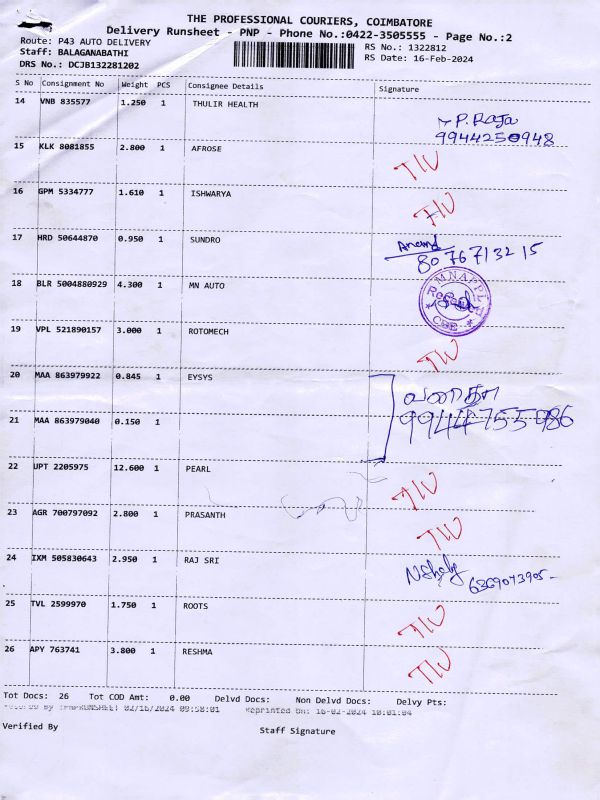 THE PROFESSIONAL COURIERS, COIMBATORE
Delivery Runsheet - PNP - Phone No.:0422-3505555 - Page No.:2
Route: P43 AUTO DELIVERY RS No.: 1322812
Staff: BALAGANABATHI RS Date: 16-Feb-2024
DRS No.: DCJB132281202
S No Consignment No Weight PCS Consignee Details Signature
14 VNB 835577 1.250 1 THULIR HEALTH P. Raja
9944250948
15 KLK 8081855 2.800 1 AFROSE
16 GPM 5334777 1.610 1 ISHWARYA
17 HRD 50644870 0.950 1 SUNDRO Anand
8076713215
18 BLR 5004880929 4.300 1 MN AUTO
19 VPL 521890157 3.000 1 ROTOMECH
20 MAA 863979922 0.845 1 EYSYS
21 MAA 863979040 0.150 1 99444755086
22 UPT 2205975 12.600 1 PEARL
23 AGR 700797092 2.800 1 PRASANTH
24 IXM 505830643 2.950 1 RAJ SRI
6369073905-
25 TVL 2599970 1.750 1 ROOTS
26 APY 763741 3.800 1 RESHMA
Tot Docs: 26 Tot COD Amt: 0.00 Delvd Docs: Non Delvd Docs: Delvy Pts:
02/16/2024 09:58:01 Reprinted On: 16-02-2024 10:01:04
Verified By Staff Signature